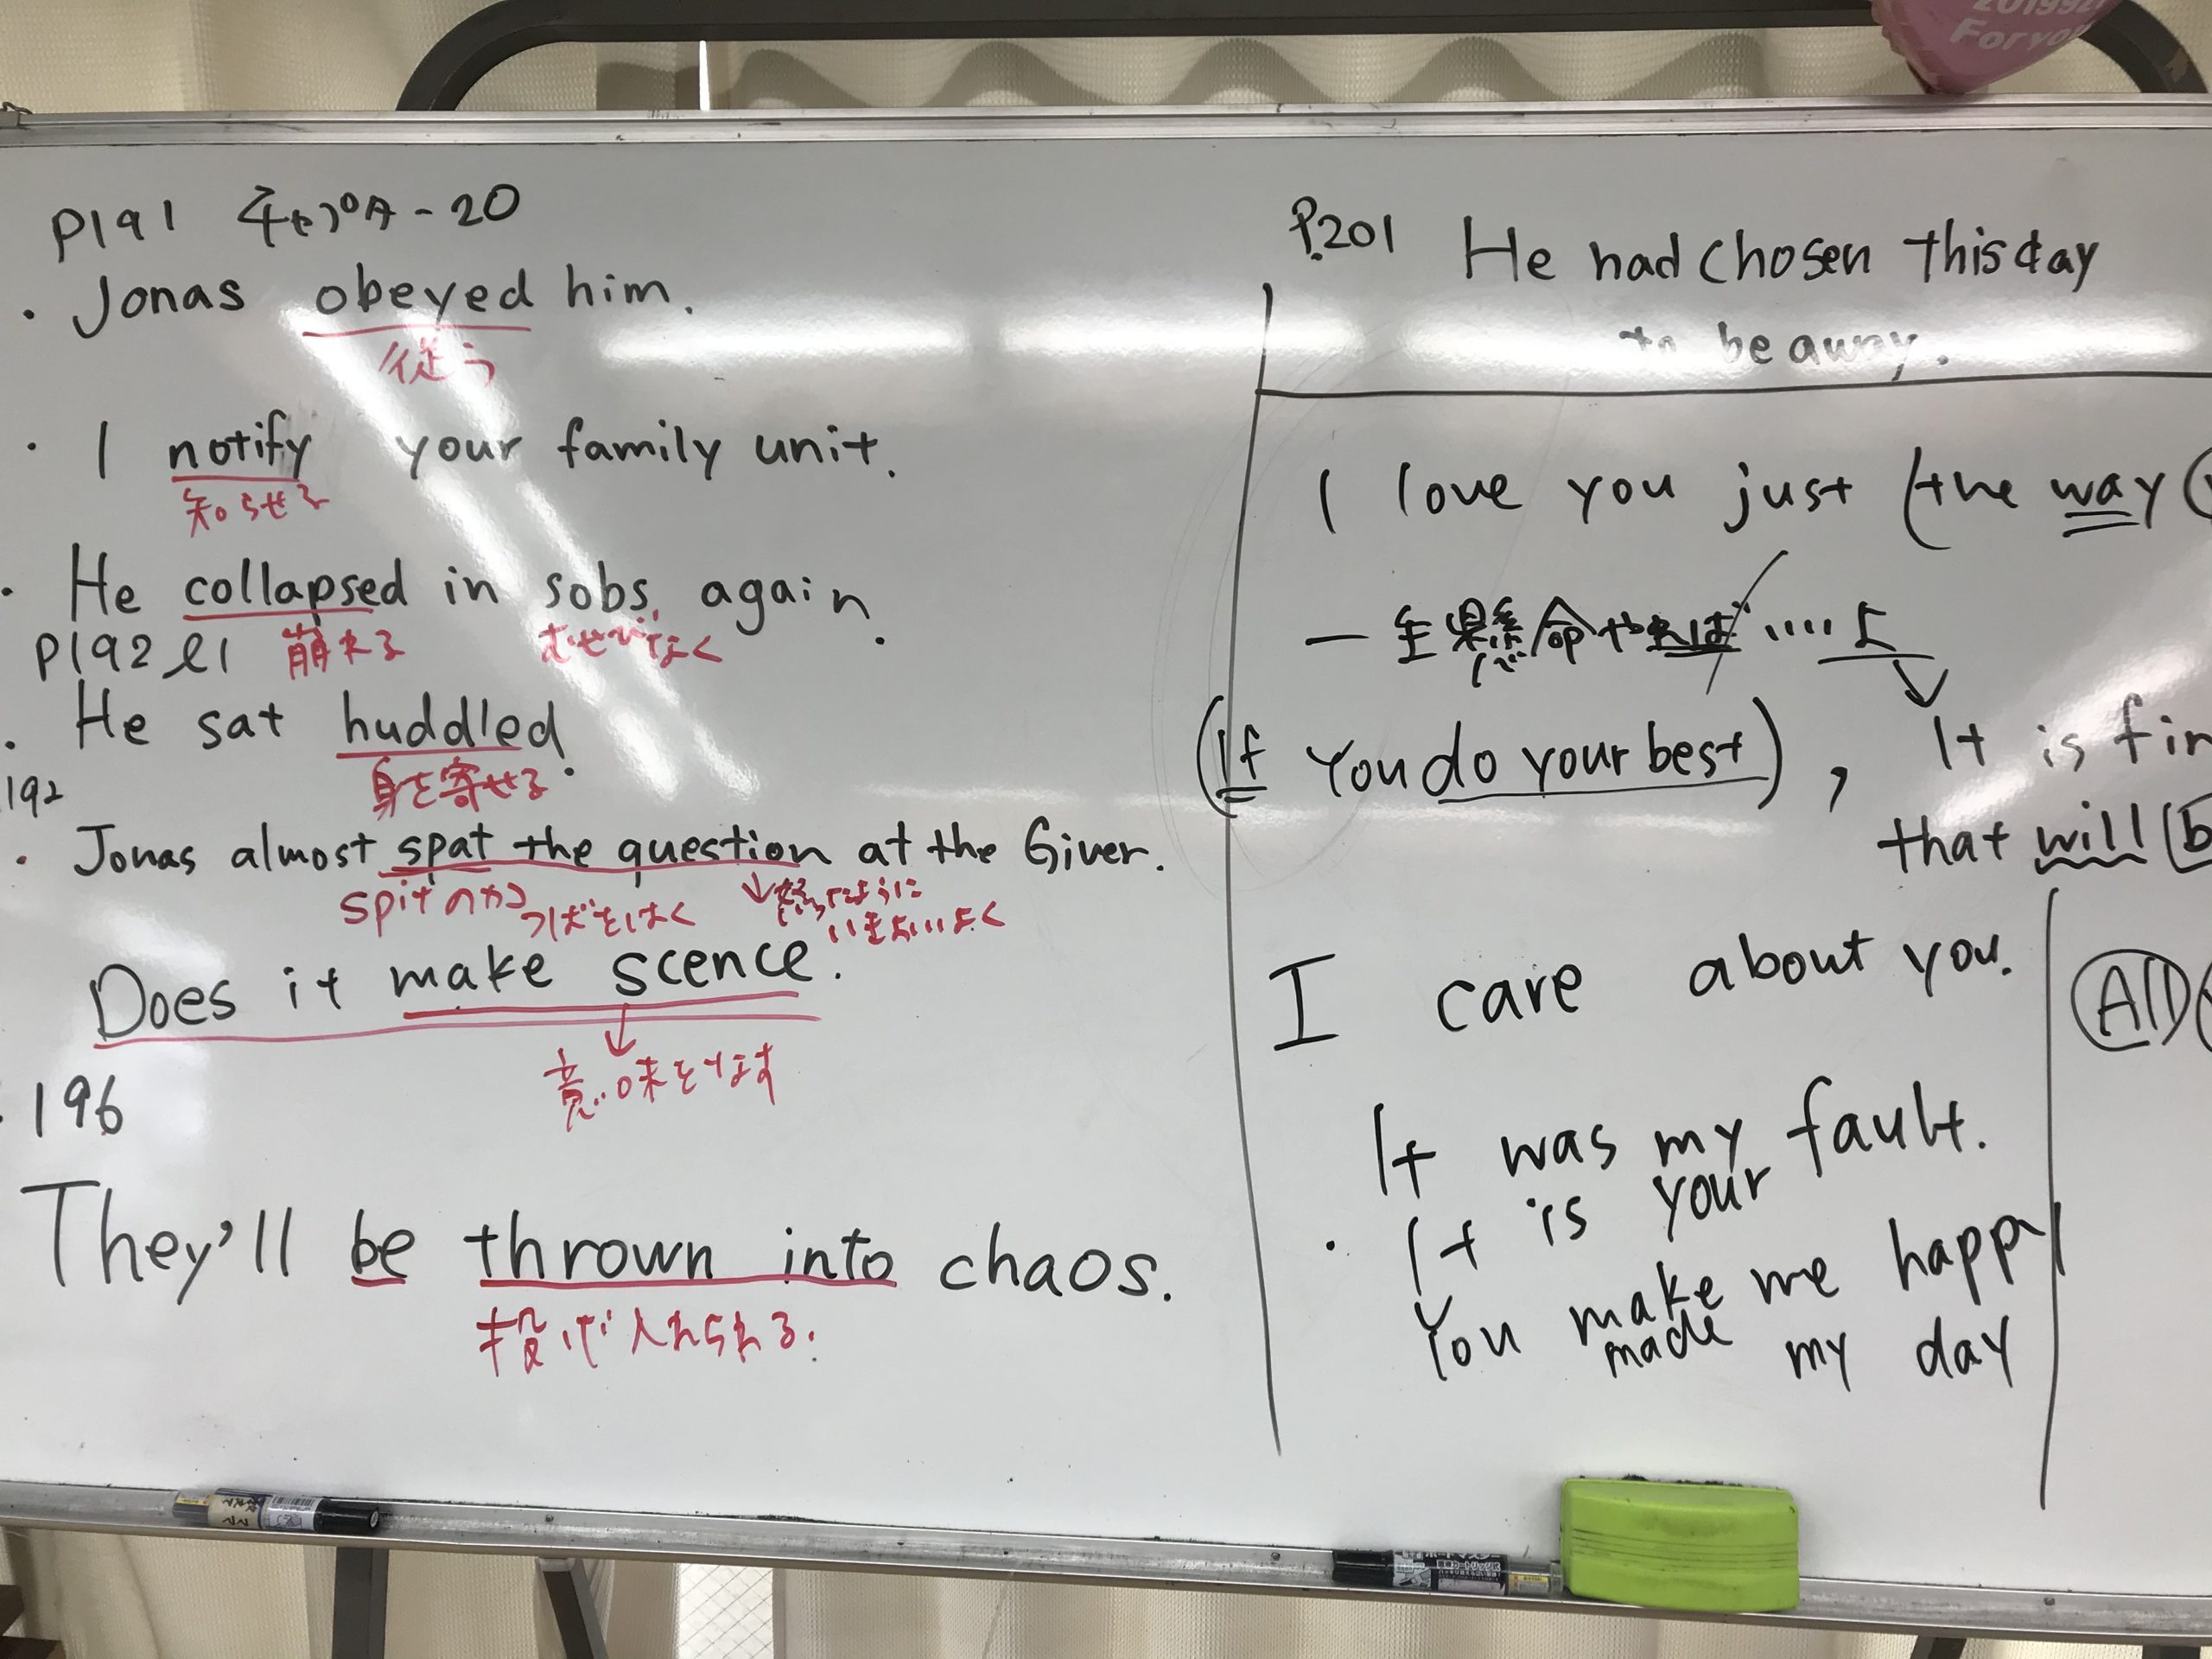 P191 チャプター20
・Jonas obeyed him.
従う
・I notify your family unit.
知らせる
・He collapsed in sobs, again.
P192 l1 崩れる むせびなく
・He sat huddled.
身を寄せる
192
・Jonas almost spat the question at the Giver.
spitのかこ つばをはく ↓怒ったように
いきよいよく
Does it make scence.
↓
意味をなす
・196
They'll be thrown into chaos.
投げ入れられる.
P.201 He had chosen this day
to be away.
I love you just (the way
一生懸命やれば‥‥よ
(If You do your best), It is
that will
I care about you.
It was my fault.
・It is your
You make me happy
made my day
201992
For you